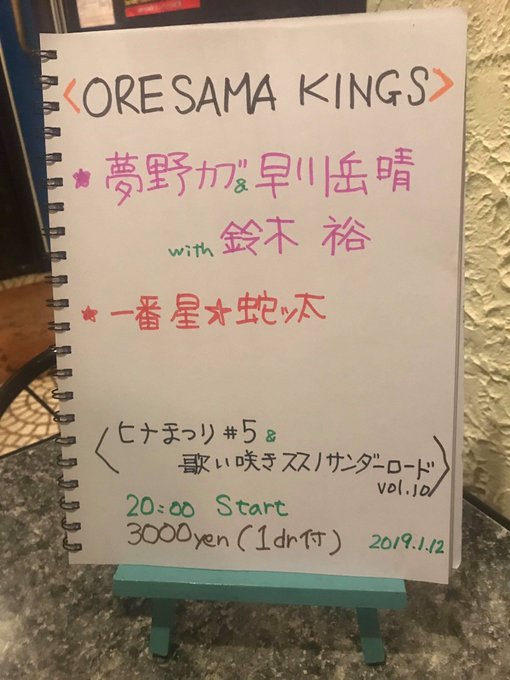 <ORESAMA KINGS>
★ 夢野カブ&早川岳晴
with 鈴木 裕
★ 一番星☆蛇ッ太
〈ヒナまつり #5 &
歌い咲きススノサンダーロード
vol.10〉
20:00 Start
3000yen (1dr付)
2019.1.12